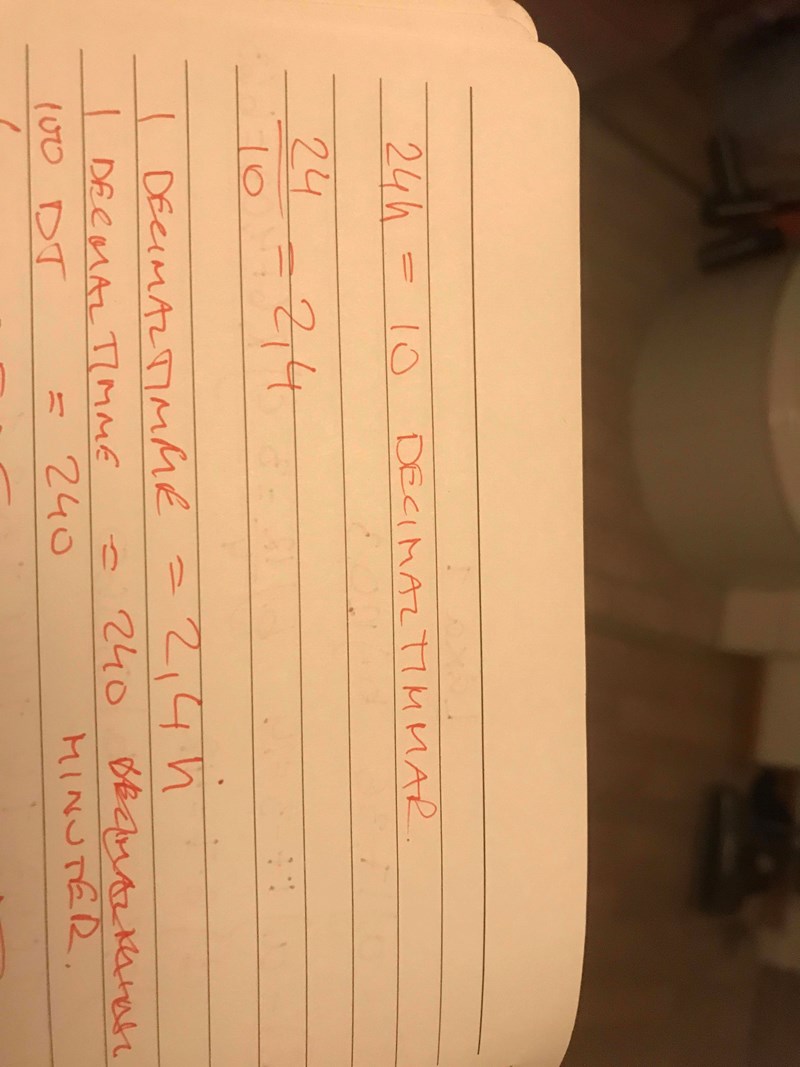 24h = 10 DECIMALTIMMAR.
24
10
= 2,4
1 DECIMALTIMME = 2,4 h
1 DECIMALTIMME = 240
MINUTER.
100 DT = 240